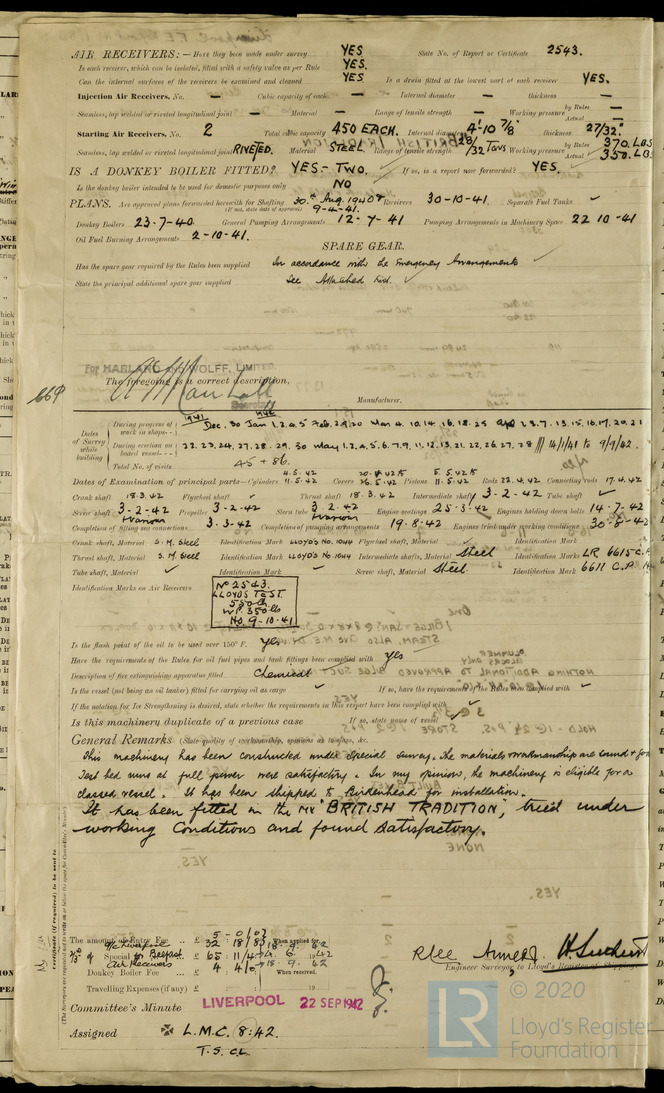 AIR RECEIVERS:— Have they been made under survey YES State No. of Report or Certificate 2543.
Is each receiver, which can be isolated, fitted with a safety valve as per Rule YES.
Can the internal surfaces of the receivers be examined and cleaned YES Is a drain fitted at the lowest part of each receiver YES.
Injection Air Receivers, No. — Cubic capacity of each — Internal diameter — thickness —
Seamless, lap welded or riveted longitudinal joint — Material — Range of tensile strength — Working pressure by Rules — Actual
Starting Air Receivers, No. 2 Total cubic capacity 450 EACH. Internal diameter 4'-10 7/8" thickness 27/32"
Seamless, lap welded or riveted longitudinal joint RIVETED. Material STEEL Range of tensile strength 28/32 Tons Working pressure by Rules 370 LBS Actual 350 LB.
IS A DONKEY BOILER FITTED? YES - TWO. If so, is a report now forwarded? YES.
Is the donkey boiler intended to be used for domestic purposes only NO
PLANS. Are approved plans forwarded herewith for Shafting 30th Aug. 1940 Receivers 30-10-41. Separate Fuel Tanks ✓
(If not, state date of approval) 9-4-41.
Donkey Boilers 23-7-40 General Pumping Arrangements 12-7-41 Pumping Arrangements in Machinery Space 22 10-41
Oil Fuel Burning Arrangements 2-10-41.
SPARE GEAR.
Has the spare gear required by the Rules been supplied In accordance with the Emergency Arrangements ✓
State the principal additional spare gear supplied See Attached List. ✓
For HARLAND AND WOLFF, LIMITED.
The foregoing is a correct description,
669
Manufacturer.
Dates of Survey while building
During progress of work in shops - - 1941 Dec. 30 1942 Jan 1.2.4.5 Feb. 2.9.20 Mar 4.10.14.16.18.25 Apl 2.3.7.13.15.16.17.20.21
During erection on board vessel - - - 22.23.24.27.28.29.30 May 1.2.4.5.6.7.9.11.12.13.21.22.26.27.28 /// 14/1/41 to 9/9/42.
Total No. of visits 45 + 86.
Dates of Examination of principal parts—Cylinders 4.5.42 11.5.42 Covers Pistons 5.5.42 11.5.42 Rods 22.4.42 Connecting rods 17.4.42
Crank shaft 18.3.42 Flywheel shaft ✓ Thrust shaft 18.3.42 Intermediate shaft 3-2-42 Tube shaft ✓
Screw shaft 3-2-42 Propeller 3-2-42 Stern tube 3.2.42 Engine seatings 25-3-42 Engines holding down bolts 14-7-42
Completion of fitting sea connections 3-3-42 Completion of pumping arrangements 19-8-42 Engines tried under working conditions 30-8-42
Crank shaft, Material S.M. Steel Identification Mark LLOYD'S No. 1044 Flywheel shaft, Material ✓ Identification Mark
Thrust shaft, Material S.M. Steel Identification Mark LLOYD'S No. 1044 Intermediate shafts, Material Steel Identification Marks LR 6615 C.P.
Tube shaft, Material ✓ Identification Mark ✓ Screw shaft, Material Steel. Identification Mark 6611 C.P
Identification Marks on Air Receivers
No 2543.
LLOYDS TEST
550 lb
W.P. 350 lb
9-10-41
Is the flash point of the oil to be used over 150° F. yes
Have the requirements of the Rules for oil fuel pipes and tank fittings been complied with yes
Description of fire extinguishing apparatus fitted Chemical ✓
Is the vessel (not being an oil tanker) fitted for carrying oil as cargo ✓ If so, have the requirements of the Rules been complied with ✓
If the notation for Ice Strengthening is desired, state whether the requirements in this respect have been complied with ✓
Is this machinery duplicate of a previous case If so, state name of vessel
General Remarks (State quality of workmanship, opinions as to class, &c.
This machinery has been constructed under Special Survey. The materials & workmanship are sound &
Test bed runs at full power were satisfactory. In my opinion, the machinery is eligible for a
classed vessel. It has been shipped to Birkenhead for installation.
It has been fitted in the MV "BRITISH TRADITION", tried under
working conditions and found satisfactory.
The amount of Entry Fee .. £ 5 - 0/0 When applied for,
Special £ 65 : 11/4
Donkey Boiler Fee ... £ 4 4/0 When received,
Travelling Expenses (if any) £ : : 19
Engineer Surveyor to Lloyd's Register of Shipping
Committee's Minute LIVERPOOL 22 SEP 1942
Assigned ✠ L.M.C. 8:42.
T.S. CL.
© 2020
LR Lloyd's Register
Foundation